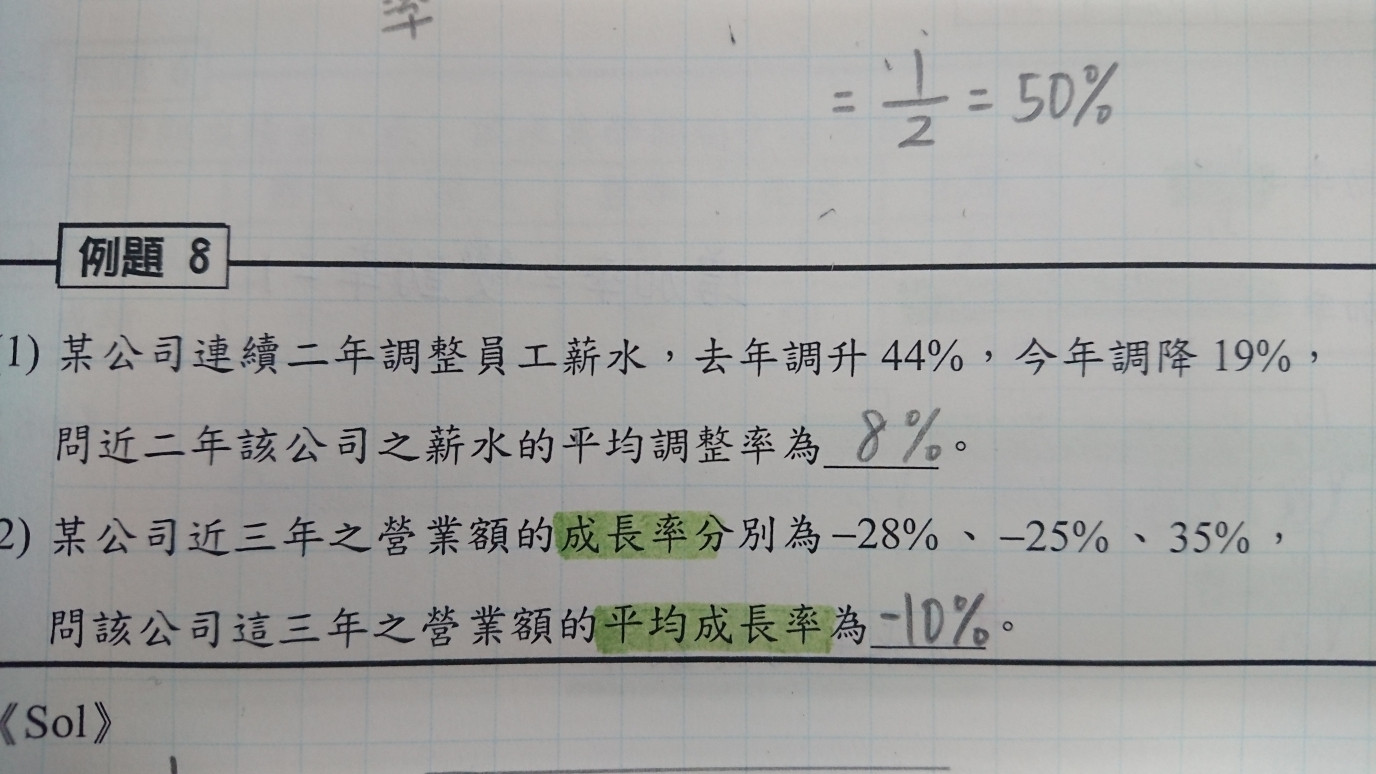 率
= 1/2 = 50%
例題 8
1) 某公司連續二年調整員工薪水，去年調升 44%，今年調降 19%，
問近二年該公司之薪水的平均調整率為 8%。
2) 某公司近三年之營業額的成長率分別為 –28%、–25%、35%，
問該公司這三年之營業額的平均成長率為 -10%。
《Sol》